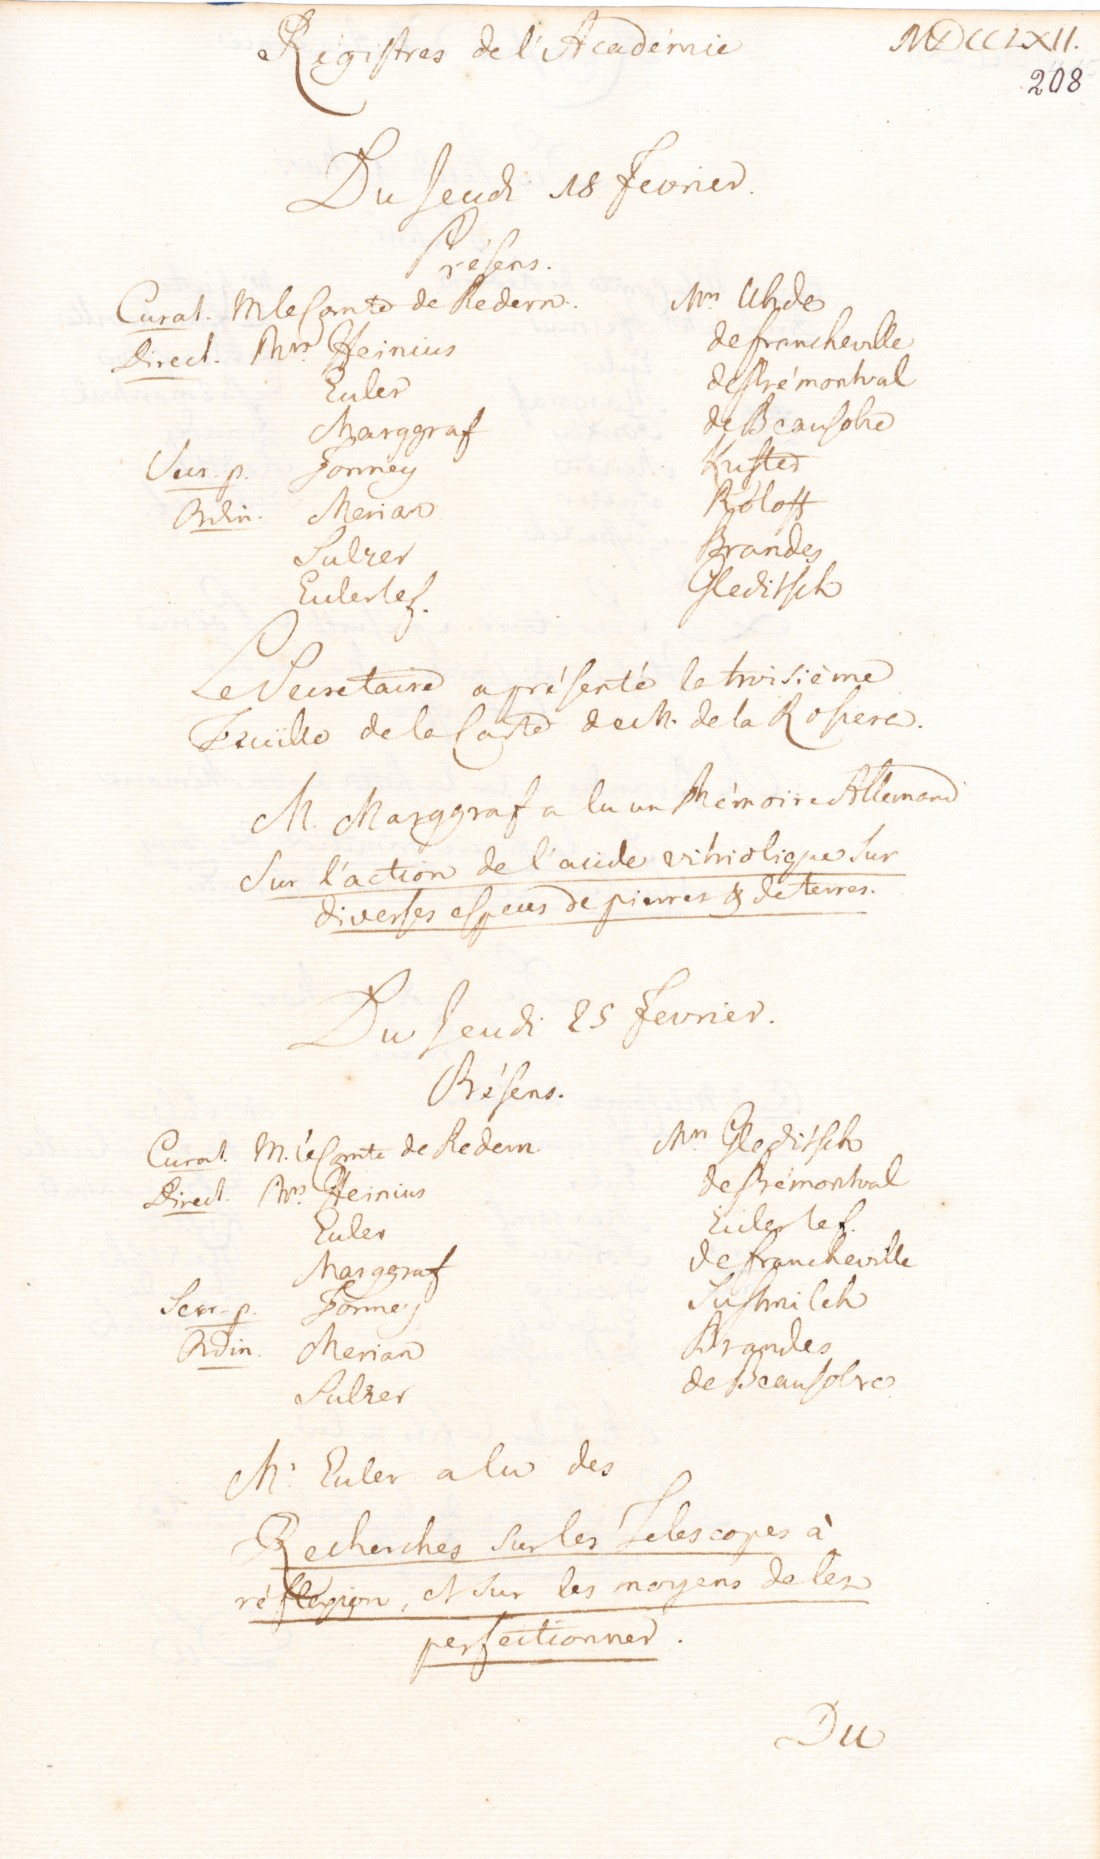 Régistres de l'Académie
MDCCLXII.
208
Du Jeudi 18 Fevrier.
Présens.
Curat. M. le Comte de Redern.
Direct. Mrs. Heinius
Euler
Marggraf
Secr. p. Formey
Ordin. Merian
Sulzer
Euler le f.
Mrs. Uhde
de Francheville
de Prémontval
de Beausobre
Kuster
Roloff
Brandes
Gleditsch
Le Secretaire a présenté la troisième
Feuille de la Carte de M. de la Rosiere.
M. Marggraf a lu un Mémoire Allemand
sur l'action de l'acide vitriolique sur
diverses especes de pierres & de terres.
Du Jeudi 25 Fevrier.
Présens.
Curat. M. le Comte de Redern.
Direct. Mrs. Heinius
Euler
Marggraf
Secr. p. Formey
Ordin. Merian
Sulzer
Mrs. Gleditsch
de Prémontval
Euler le f.
de Francheville
Susmilch
Brandes
de Beausobre
Mr. Euler a lu des
Recherches sur les Telescopes à
réflexion, et sur les moyens de les
perfectionner.
Du